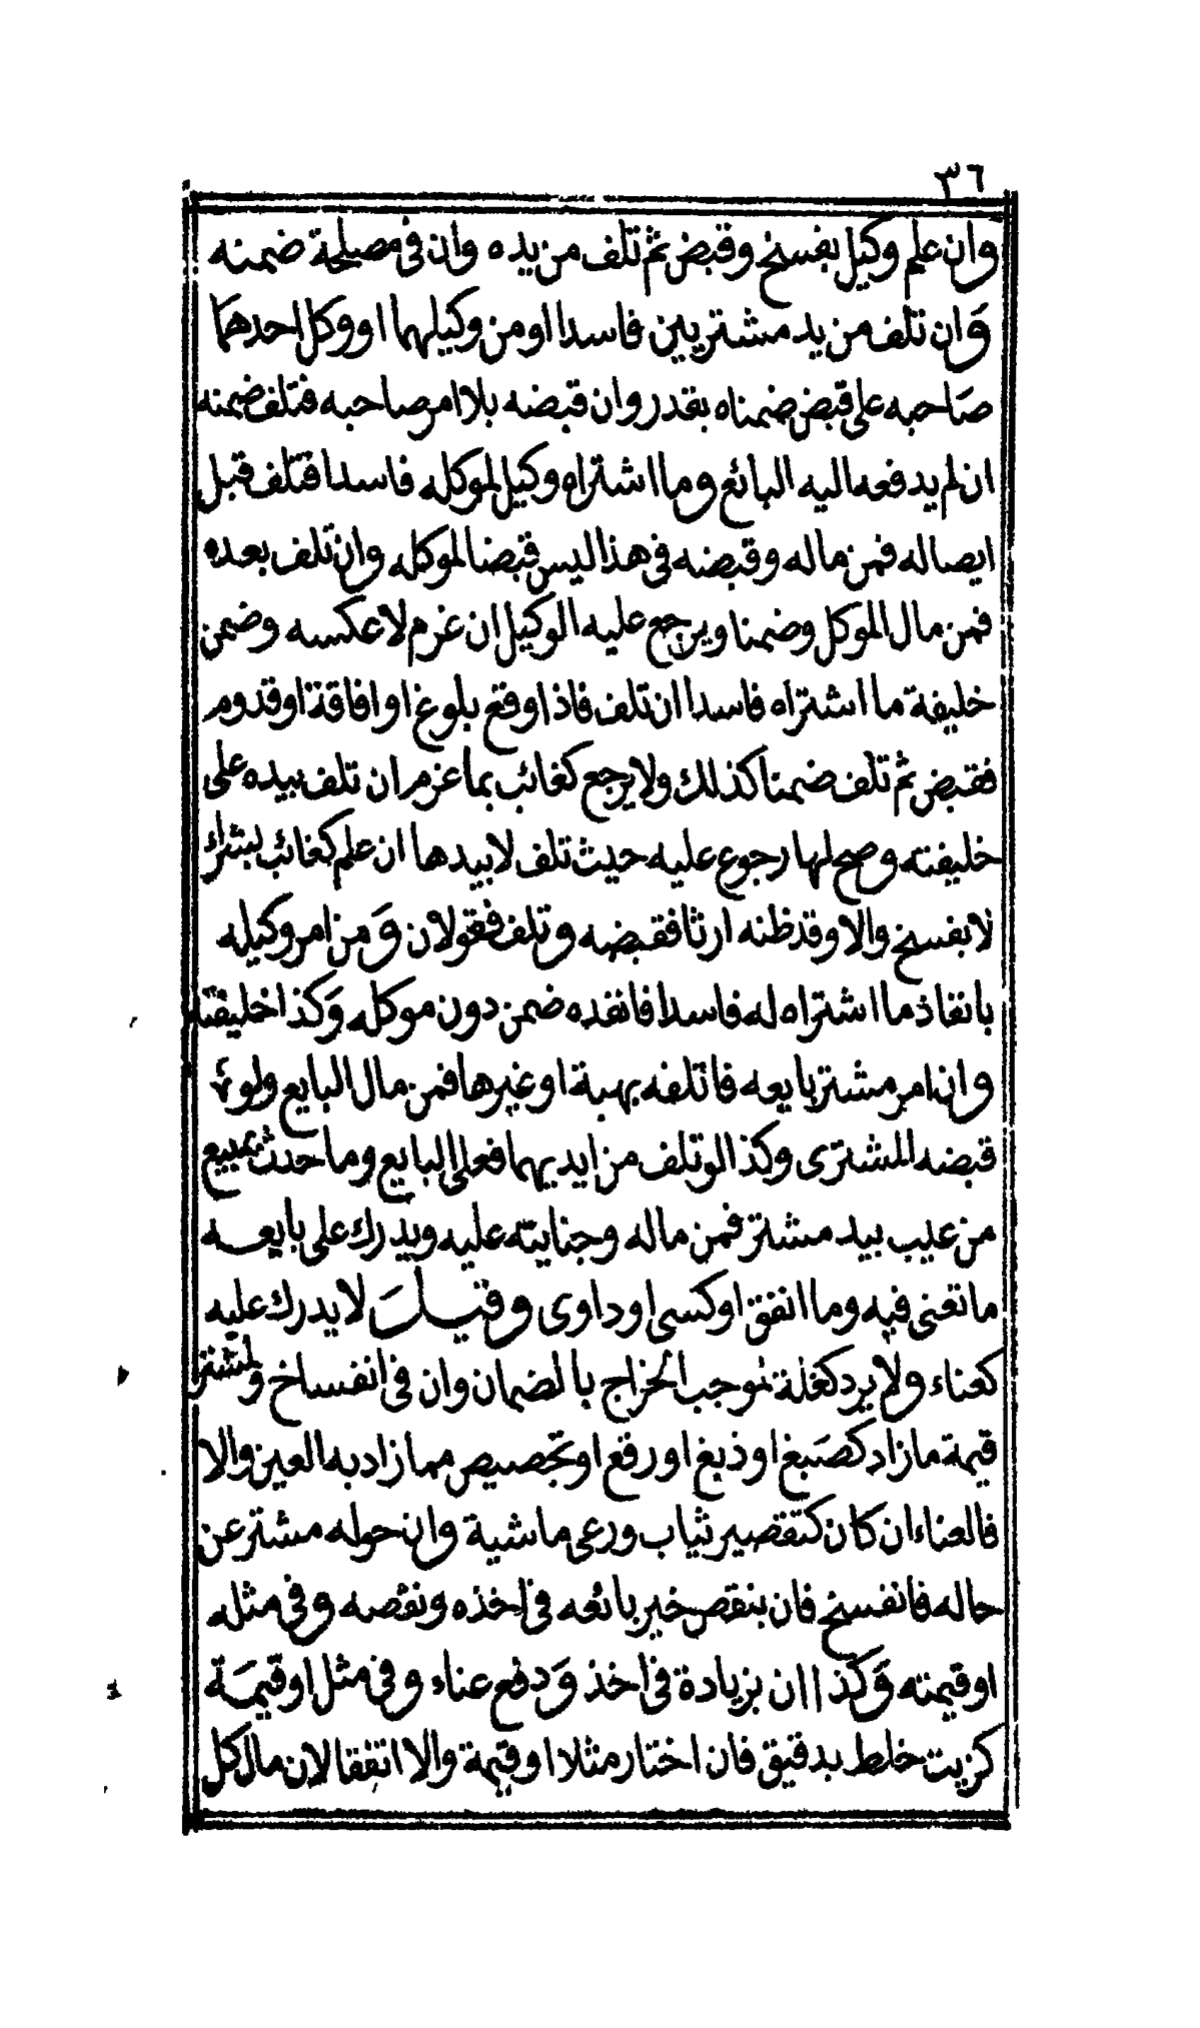 ٣٦
وان علم وكيل بفسخ وقبض ثم تلف من يده وان في مصيلحة ضمنه
وان تلف من يد مشتريين فاسدا او من وكيلهما او وكل احدهما
صاحبه على قبض ضمناه بقدر وان قبضه بلا امر صاحبه فتلف ضمنه
ان لم يدفعه اليه البائع وما اشتراه وكيل لموكله فاسدا فتلف قبل
ايصاله فمن ماله وقبضه في هذا ليس قبضا لموكله وان تلف بعده
فمن مال الموكل وضمنا ويرجع عليه الوكيل ان غرم لا عكسه وضمن
خليفة ما اشتراه فاسدا ان تلف فاذا وقع بلوغ او افاقة او قدوم
فقبض ثم تلف ضمنا كذلك ولا يرجع كغائب بما غرم ان تلف بيده على
خليفته وصح لها رجوع عليه حيث تلف لا بيدها ان علم كغائب بشراء
لا بفسخ والا وقد ظنه ارثا فقبضه وتلف فقولان ومن امر وكيله
بانفاذ ما اشتراه له فاسدا فانفده ضمن دون موكله وكذا خليفته
وان امر مشتر بايعه فاتلفه بهبة او غيرها فمن مال البايع ولو
قبضه المشترى وكذا لو تلف من ايديهما فعلى البايع وما حدث بمبيع
من عيب بيد مشتر فمن ماله وجنايته عليه ويدرك على بايعه
ما تعنى فيه وما انفق او كسى او داوى وقيل لا يدرك عليه
كعناء ولا يرد كغلة لموجب الخراج بالضمان وان في انفساخ ولمشتر
قيمة ما زاد كصبغ او ذبغ او رقع او تجصيص مما زاد به العين والا
فالعناء ان كان كتقصير ثياب ورعى ماشية وان حوله مشتر عن
حاله فانفسخ فان بنقص خير بائعه في اخذه ونقصه وفي مثله
او قيمته وكذا ان بزيادة في اخذ ودفع عناء وفي مثل او قيمة
كزيت خلط بدقيق فان اختار مثلا او قيمة والا اتفقا لان مال كل